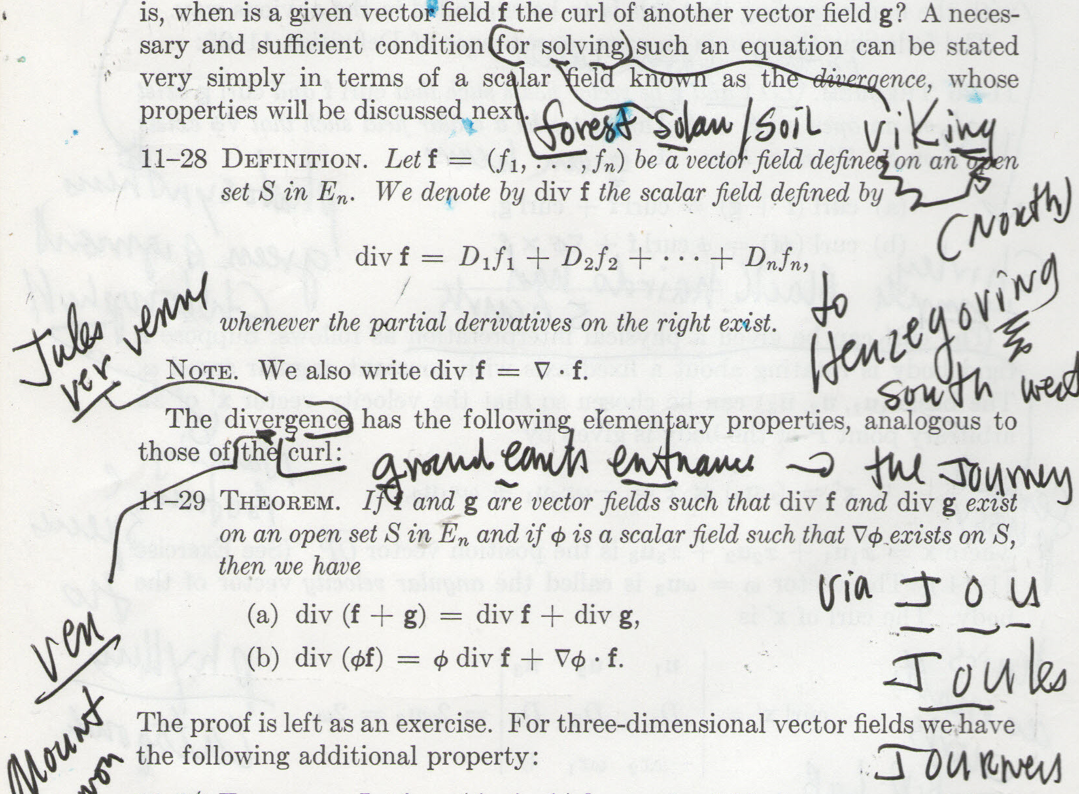 is, when is a given vector field f the curl of another vector field g? A neces-
sary and sufficient condition for solving such an equation can be stated
very simply in terms of a scalar field known as the divergence, whose
properties will be discussed next.
forest Solan / Soil Viking
11–28 DEFINITION. Let f = (f₁, . . . , fₙ) be a vector field defined on an open
set S in Eₙ. We denote by div f the scalar field defined by
(North)
div f = D₁f₁ + D₂f₂ + · · · + Dₙfₙ,
to
Jules Verne
ver
whenever the partial derivatives on the right exist.
south west
NOTE. We also write div f = ∇ · f.
The divergence has the following elementary properties, analogous to
those of the curl:
ground earth entrance → the Journey
11–29 THEOREM. If f and g are vector fields such that div f and div g exist
on an open set S in Eₙ and if ϕ is a scalar field such that ∇ϕ exists on S,
then we have
via J o u
(a) div (f + g) = div f + div g,
ven
(b) div (ϕf) = ϕ div f + ∇ϕ · f.
Joules
The proof is left as an exercise. For three-dimensional vector fields we have
Mount
the following additional property: